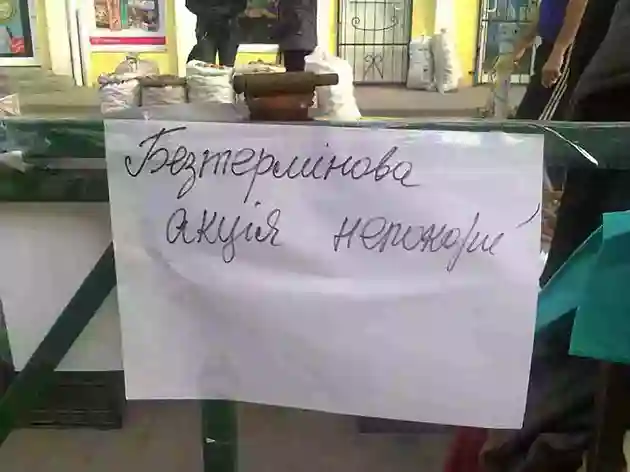 Безтермінова
акція непокори